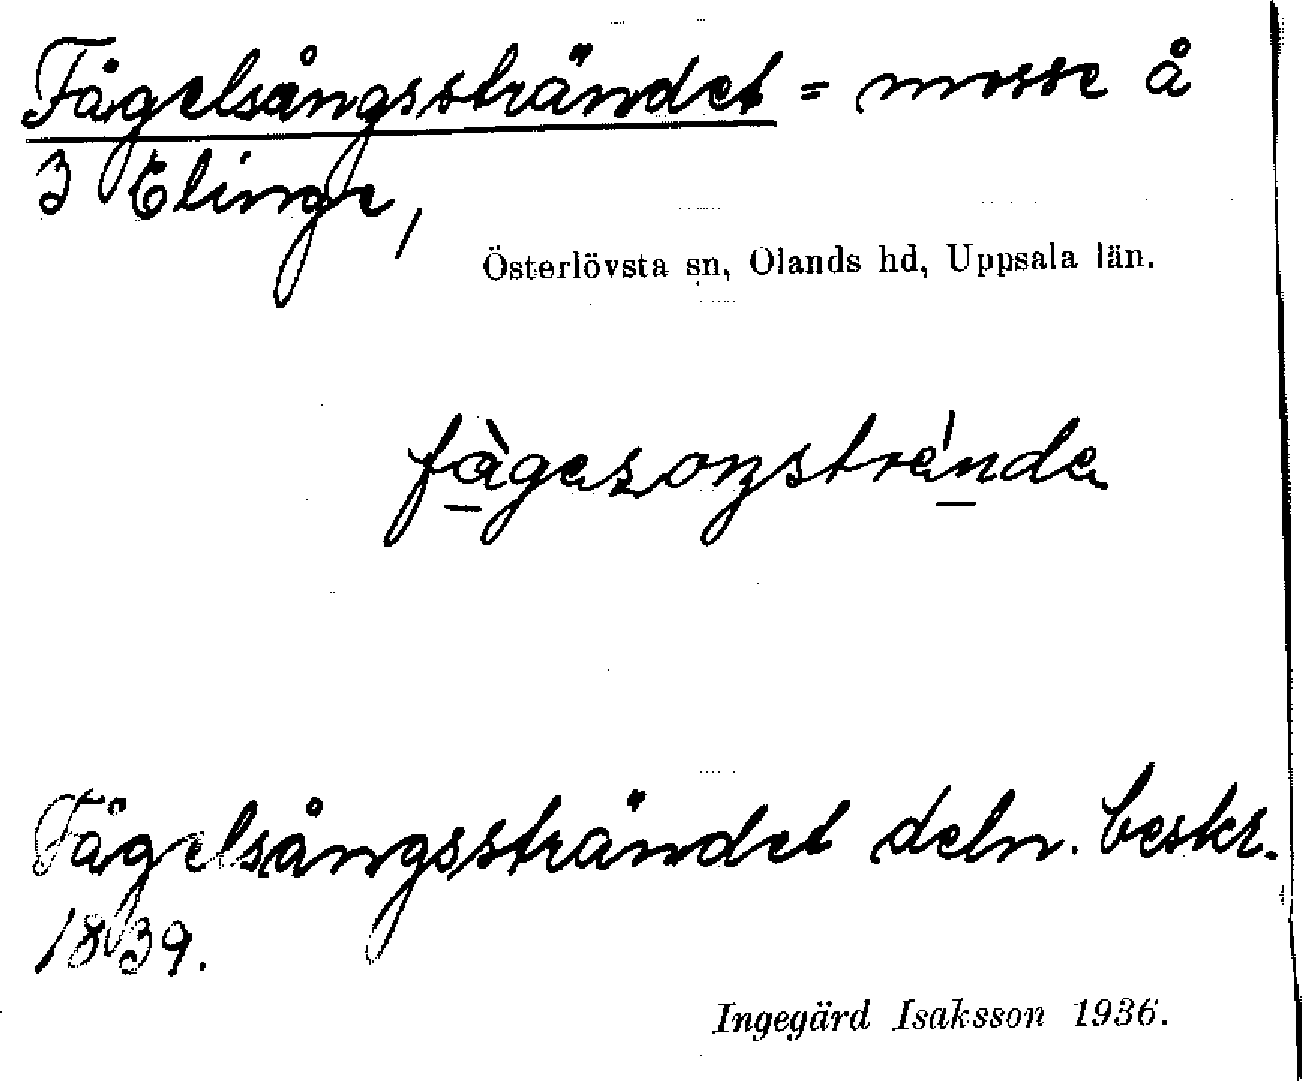 Fågelsångssträndet = mosse å
3 Elinge,
Österlövsta sn, Olands hd, Uppsala län.
Fågelsångssträndet deln. beskr.
1839.
Ingegärd Isaksson 1936.